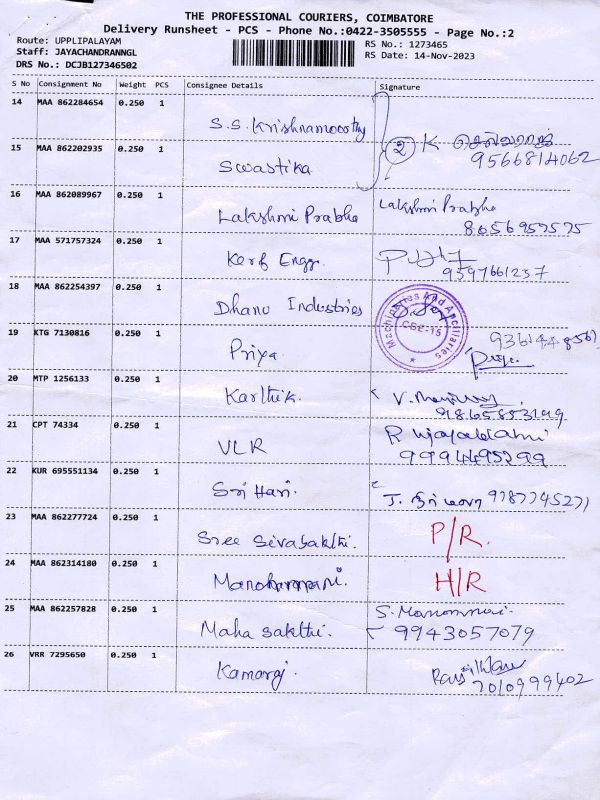 THE PROFESSIONAL COURIERS, COIMBATORE
Delivery Runsheet - PCS - Phone No.:0422-3505555 - Page No.:2
Route: UPPLIPALAYAM
RS No.: 1273465
Staff: JAYACHANDRANNGL
RS Date: 14-Nov-2023
DRS No.: DCJB127346502
S No Consignment No Weight PCS Consignee Details Signature
14 MAA 862284654 0.250 1 S.S. Krishnamoorthy
2 K
15 MAA 862202935 0.250 1 Swastika 9566814062
16 MAA 862089967 0.250 1 Lakshmi Prabha Lakshmi Prabha
8056957575
17 MAA 571757324 0.250 1 Kerf Engg.
9597661237
18 MAA 862254397 0.250 1 Dhanu Industries
Machineries And Ancillaries
CBE-15
19 KTG 7130816 0.250 1 Priya. Priya
20 MTP 1256133 0.250 1 Karthik.
9865853199
21 CPT 74334 0.250 1 VLR R Vijayalakshmi
9994495299
22 KUR 695551134 0.250 1 Sri Hari. J. 9787745271
23 MAA 862277724 0.250 1 Sree Sivasakthi. P/R.
24 MAA 862314180 0.250 1 H/R
25 MAA 862257828 0.250 1 Maha Sakthi. S.
9943057079
26 VRR 7295650 0.250 1 Kamaraj.
7010999402